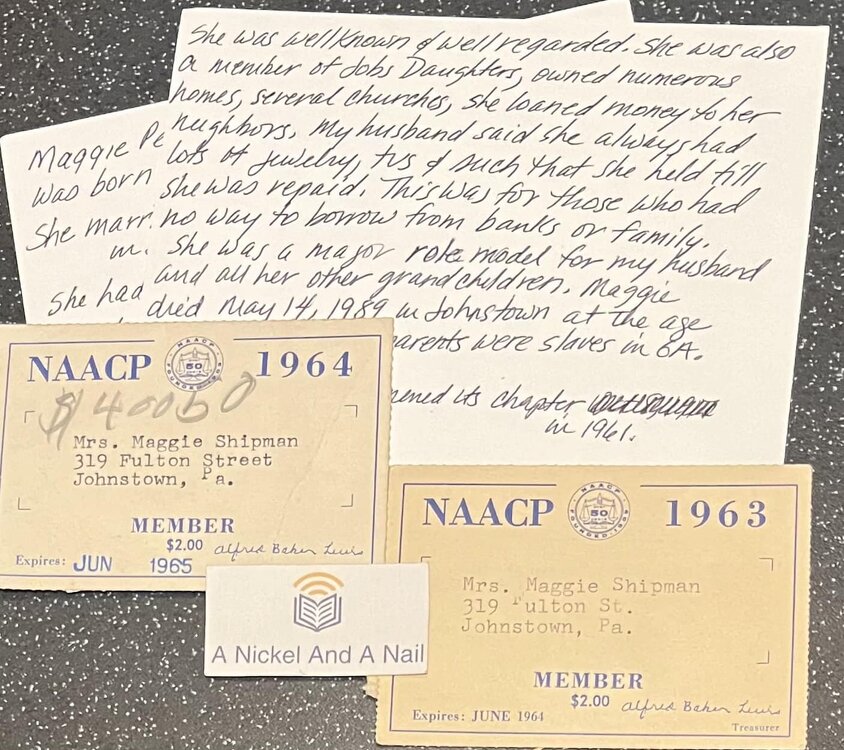 She was well known & well regarded. She was also
a member of Jobs Daughters, owned numerous
homes, several churches, she loaned money to her
neighbors. My husband said she always had
lots of jewelry, tvs & such that she held till
she was repaid. This was for those who had
no way to borrow from banks or family.
She was a major role model for my husband
and all her other grandchildren. Maggie
died May 14, 1989 in Johnstown at the age
parents were slaves in GA.
its chapter
in 1961.
Maggie
was born
She
She had
NAACP 1964
NAACP
50
FOUNDED 1909
$40050
Mrs. Maggie Shipman
319 Fulton Street
Johnstown, Pa.
MEMBER
$2.00 Alfred Baker Lewis
Expires: JUN 1965
A Nickel And A Nail
NAACP 1963
NAACP
50
FOUNDED 1909
Mrs. Maggie Shipman
319 Fulton St.
Johnstown, Pa.
MEMBER
$2.00 Alfred Baker Lewis
Expires: JUNE 1964
Treasurer